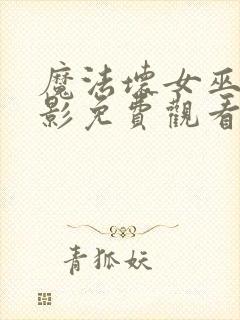 魔法壞女巫
影免費觀看
青狐妖